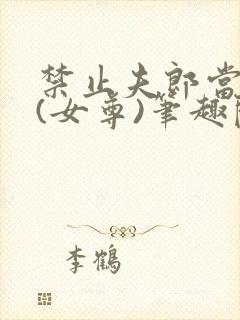 禁止夫郎當
(女尊)筆趣
李鶴